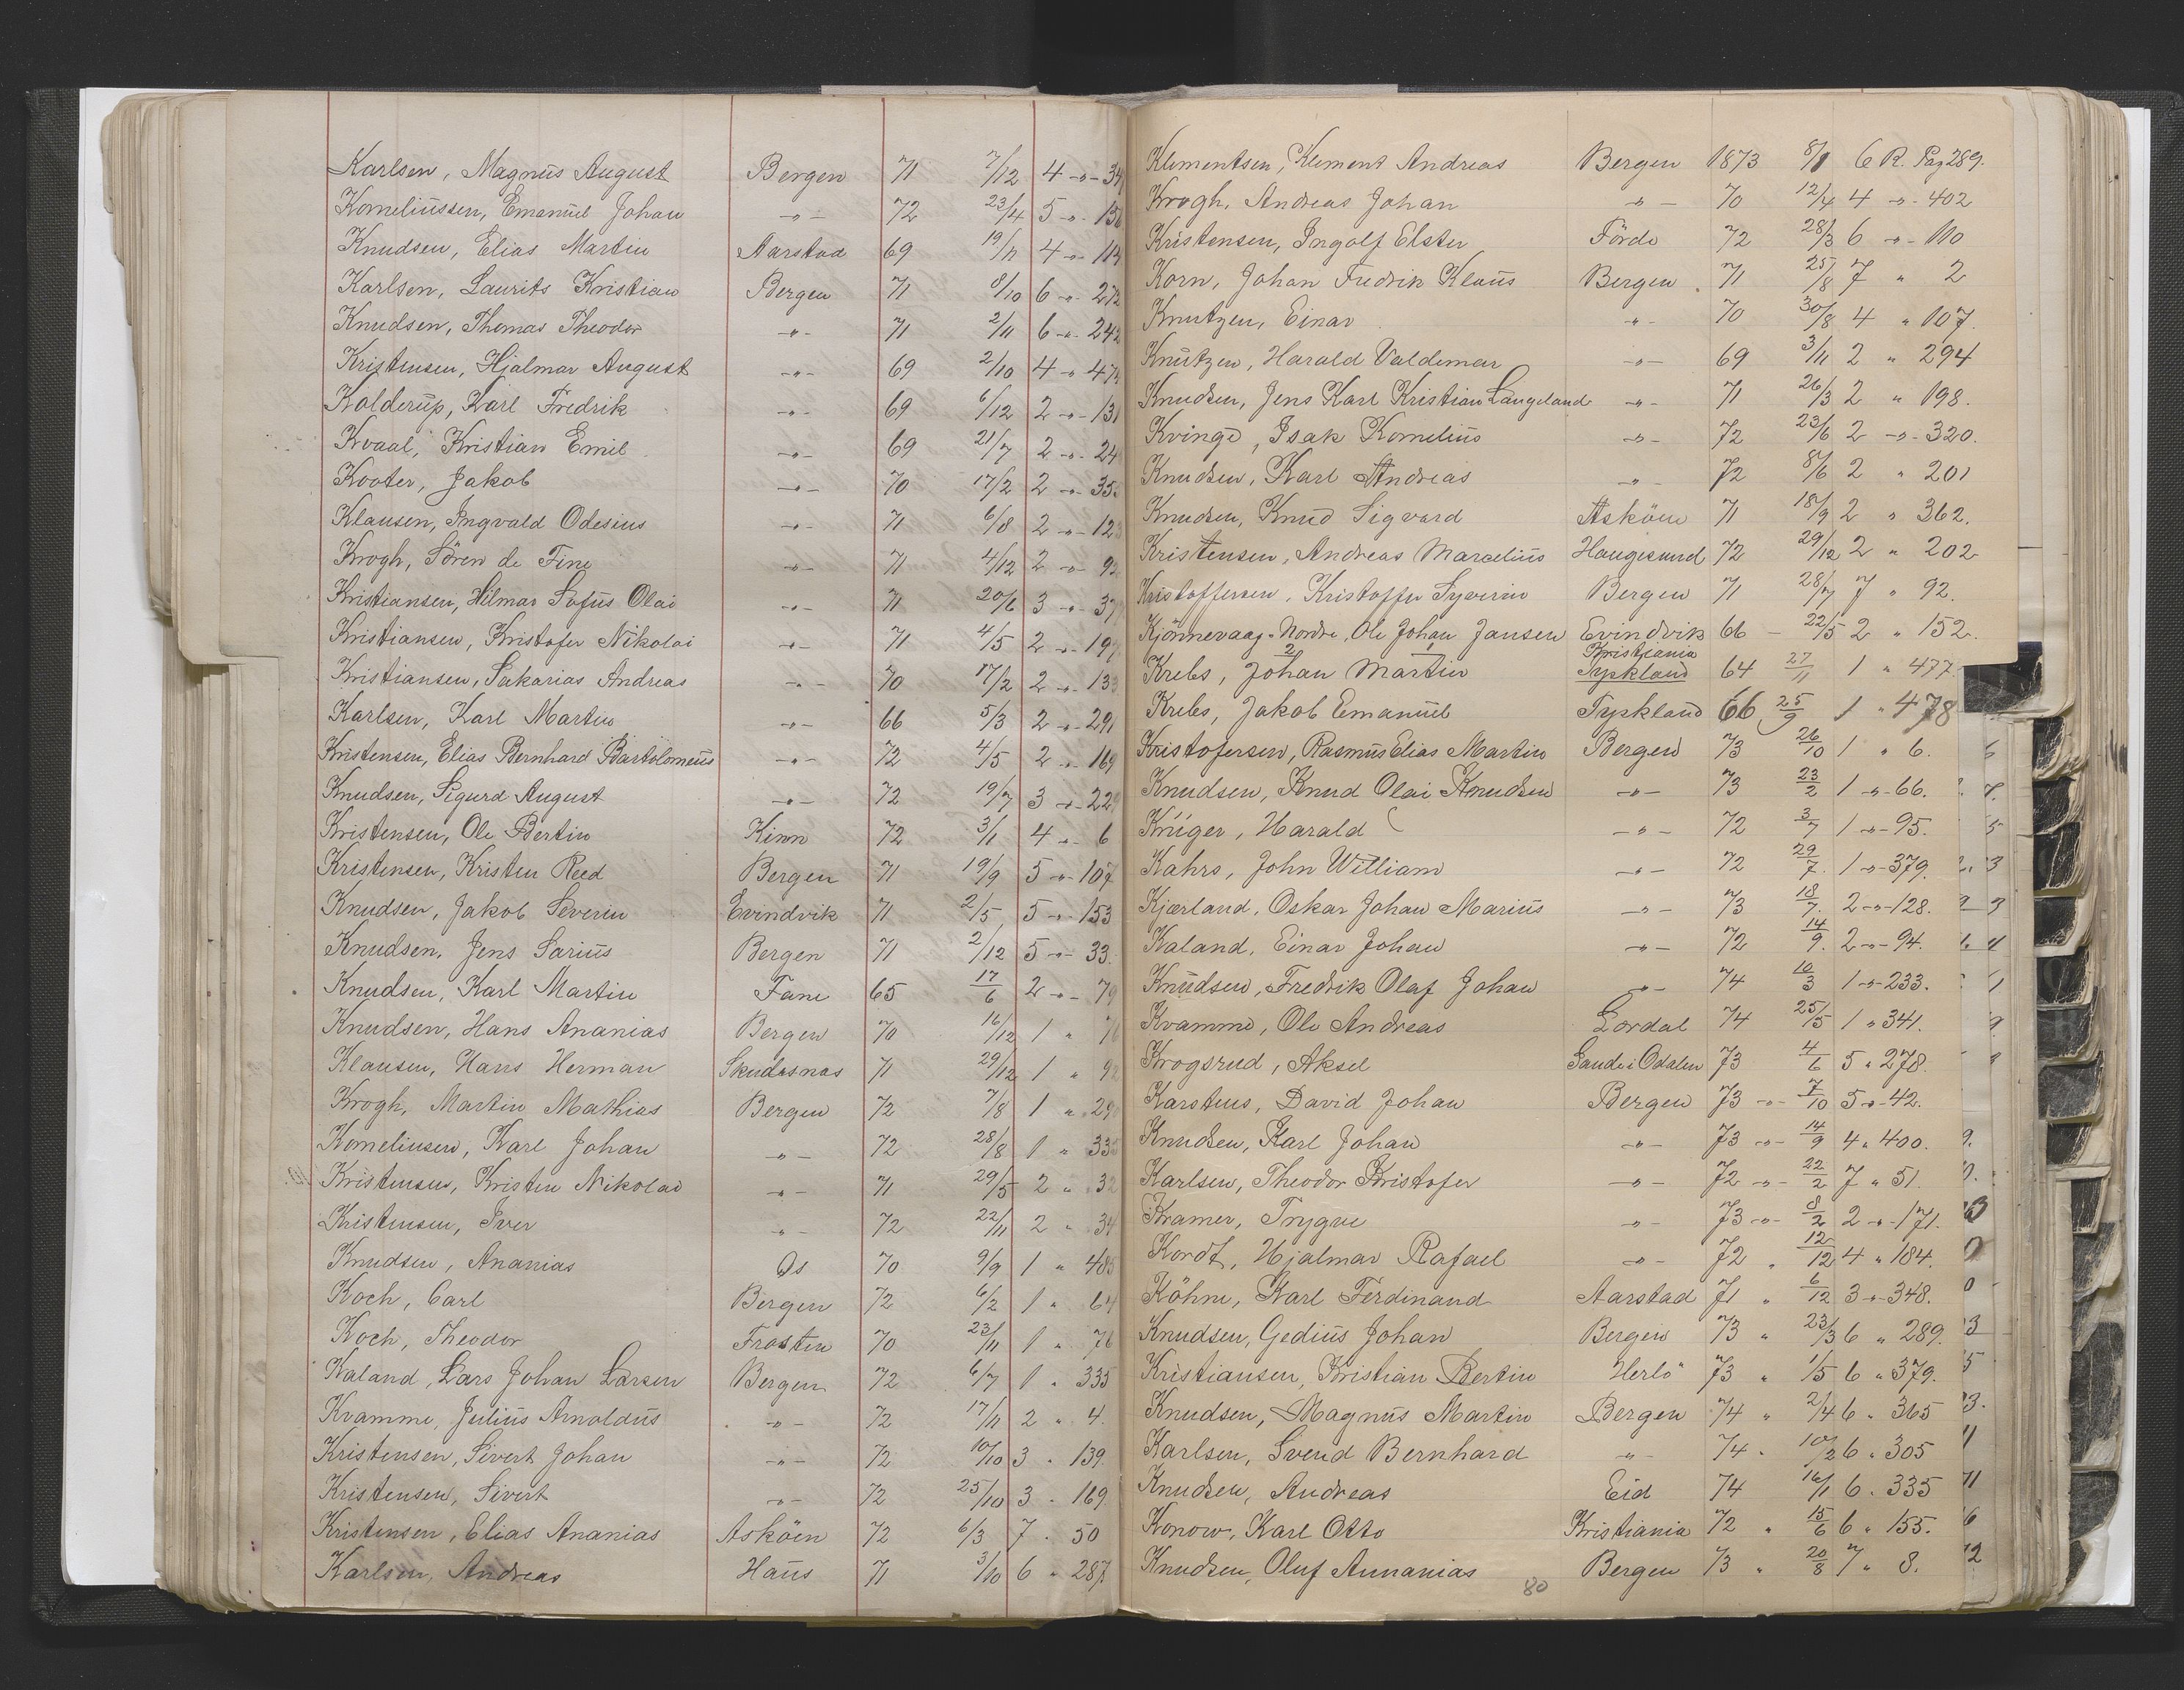 Karlsen, Magnus August Bergen 71 7/12 4 -"- 34
Korneliussen, Emanuel Johan -"- 72 23/4 5 -"- 156
Knudsen, Elias Martin Aarstad 69 19/11 4 -"- 113
Karlsen, Laurits Kristian Bergen 71 8/10 6 -"- 273
Knudsen, Thomas Theodor -"- 71 2/11 6 -"- 242
Kristensen, Hjalmar August -"- 69 2/10 4 -"- 473
Kolderup, Karl Fredrik -"- 69 6/12 2 -"- 131
Kvaal, Kristian Emil -"- 69 21/7 2 -"- 24
Kooter, Jakob -"- 70 17/2 2 -"- 35
Klausen, Ingvald Odesius -"- 71 6/8 2 -"- 123
Krogh, Sören de Fine -"- 71 4/12 2 -"- 92
Kristiansen, Hilmar Sofus Olai -"- 71 20/6 3 -"- 37
Kristiansen, Kristofer Nikolai -"- 71 4/5 2 -"- 197
Kristiansen, Sakarias Andreas -"- 70 17/2 2 -"- 133
Karlsen, Karl Martin -"- 66 5/3 2 -"- 291
Kristensen, Elias Bernhard Bartolomeus -"- 72 4/5 2 -"- 169
Knudsen, Sigurd August -"- 72 19/7 3 -"- 229
Kristensen, Ole Bertin Kinn 72 3/11 4 -"- 6
Kristensen, Kristen Reed Bergen 71 19/9 5 -"- 107
Knudsen, Jakob Severin Evindvik 71 2/5 5 -"- 153
Knudsen, Jens Sarius Bergen 71 2/12 5 -"- 33.
Knudsen, Karl Martin Fane 65 17/6 2 -"- 79
Knudsen, Hans Ananias Bergen 70 16/12 1 " 76
Klausen, Hans Herman Skudesnas 71 29/12 1 " 92
Krogh, Martin Mathias Bergen 72 7/8 1 " 29
Korneliusen, Karl Johan -"- 72 28/8 1 " 335
Kristensen, Kristen Nikolai -"- 71 29/5 2 " 32
Kristensen, Iver -"- 72 22/11 2 " 34
Knudsen, Ananias Os 70 9/9 1 " 485
Koch, Carl Bergen 72 6/2 1 " 64
Koch, Theodor Frosten 70 23/11 1 " 76
Kaland, Lars Johan Larsen Bergen 72 6/7 1 " 335
Kvamme, Julius Arnoldus -"- 72 17/11 2 " 4.
Kristensen, Sivert Johan -"- 72 10/10 3 " 139.
Kristensen, Sivert -"- 72 25/10 3 " 169.
Kristensen, Elias Ananias Asköen 72 6/3 7 " 50
Karlsen, Andreas Haus 71 3/10 6 " 287
Klementsen, Klement Andreas Bergen 1873 8/1 6 R. Pag 289.
Krogh, Andreas Johan -"- 70 12/4 4 -"- 402
Kristensen, Ingolf Elster Förde 72 28/3 6 -"- 110
Korn, Johan Fredrik Klaus Bergen 71 25/8 7 " 2
Knutzen, Einar -"- 70 30/8 4 " 107.
Knutzen, Harald Valdemar -"- 69 3/11 2 " 294
Knudsen, Jens Karl Kristian Langeland -"- 71 26/3 2 " 198.
Kvinge, Isak Kornelius -"- 72 23/6 2 -"- 320.
Knudsen, Karl Andreas -"- 72 8/6 2 " 201
Knudsen, Knud Sigvard Asköen 71 18/9 2 " 362.
Kristensen, Andreas Marcelius Haugesund 72 29/12 2 " 202
Kristoffersen, Kristoffer Syverin Bergen 71 28/7 7 " 92.
Kjönnevaag-Nordre, Ole Johan Jansen Evindvik 66 - 22/5 2 " 152.
Kristiania
Krebs, 2 Johan 1 Martin Tyskland 64 27/11 1 " 477
Krebs, Jakob Emanuel Tyskland 66 25/9 1 " 478
Kristofersen, Rasmus Elias Martin Bergen 73 26/10 1 " 6.
Knudsen, Knud Olai Knudsen -"- 73 23/2 1 -"- 66.
Krüger, Harald -"- 72 3/7 1 -"- 95.
Kahrs, John William -"- 72 29/7. 1 -"- 379.
Kjærland, Oskar Johan Marius -"- 73 18/7. 2 -"- 128.
Kaland, Einar Johan -"- 72 14/9. 2 -"- 94.
Knudsen, Fredrik Olaf Johan -"- 74 10/3 1 -"- 233.
Kvamme, Ole Andreas Lordal 74 25/5 1 " 341.
Krogsrud, Aksel Sande i Odalen 73 4/6 5 " 278.
Karstens, David Johan Bergen 73 -"- 7/10 5 -"- 42.
Knudsen, Karl Johan -"- 73 -"- 14/9 4 " 400.
Karlsen, Theodor Kristofer -"- 72 -"- 22/2 7 " 51.
Kramer, Trygve -"- 73 -"- 8/2 2 -"- 171.
Kordt, Hjalmar Rafael -"- 72 " 12/12 4 " 184.
Köhne, Karl Ferdinand Aarstad 71 " 6/12 3 -"- 348.
Knudsen, Gedius Johan Bergen 73 " 23/3 6 " 289.
Kristiansen, Kristian Bertin Herlö 73 " 1/5 6 " 379.
Knudsen, Magnus Martin Bergen 74 " 2/4 6 " 365
Karlsen, Svend Bernhard -"- 74 " 10/2 6 " 305
Knudsen, Andreas Eid 74 16/1 6 " 335
Konow, Karl Otto Kristiania 72 " 15/6 6 " 155.
Knudsen, Oluf Annanias Bergen 73 " 20/8 7 " 8.
80